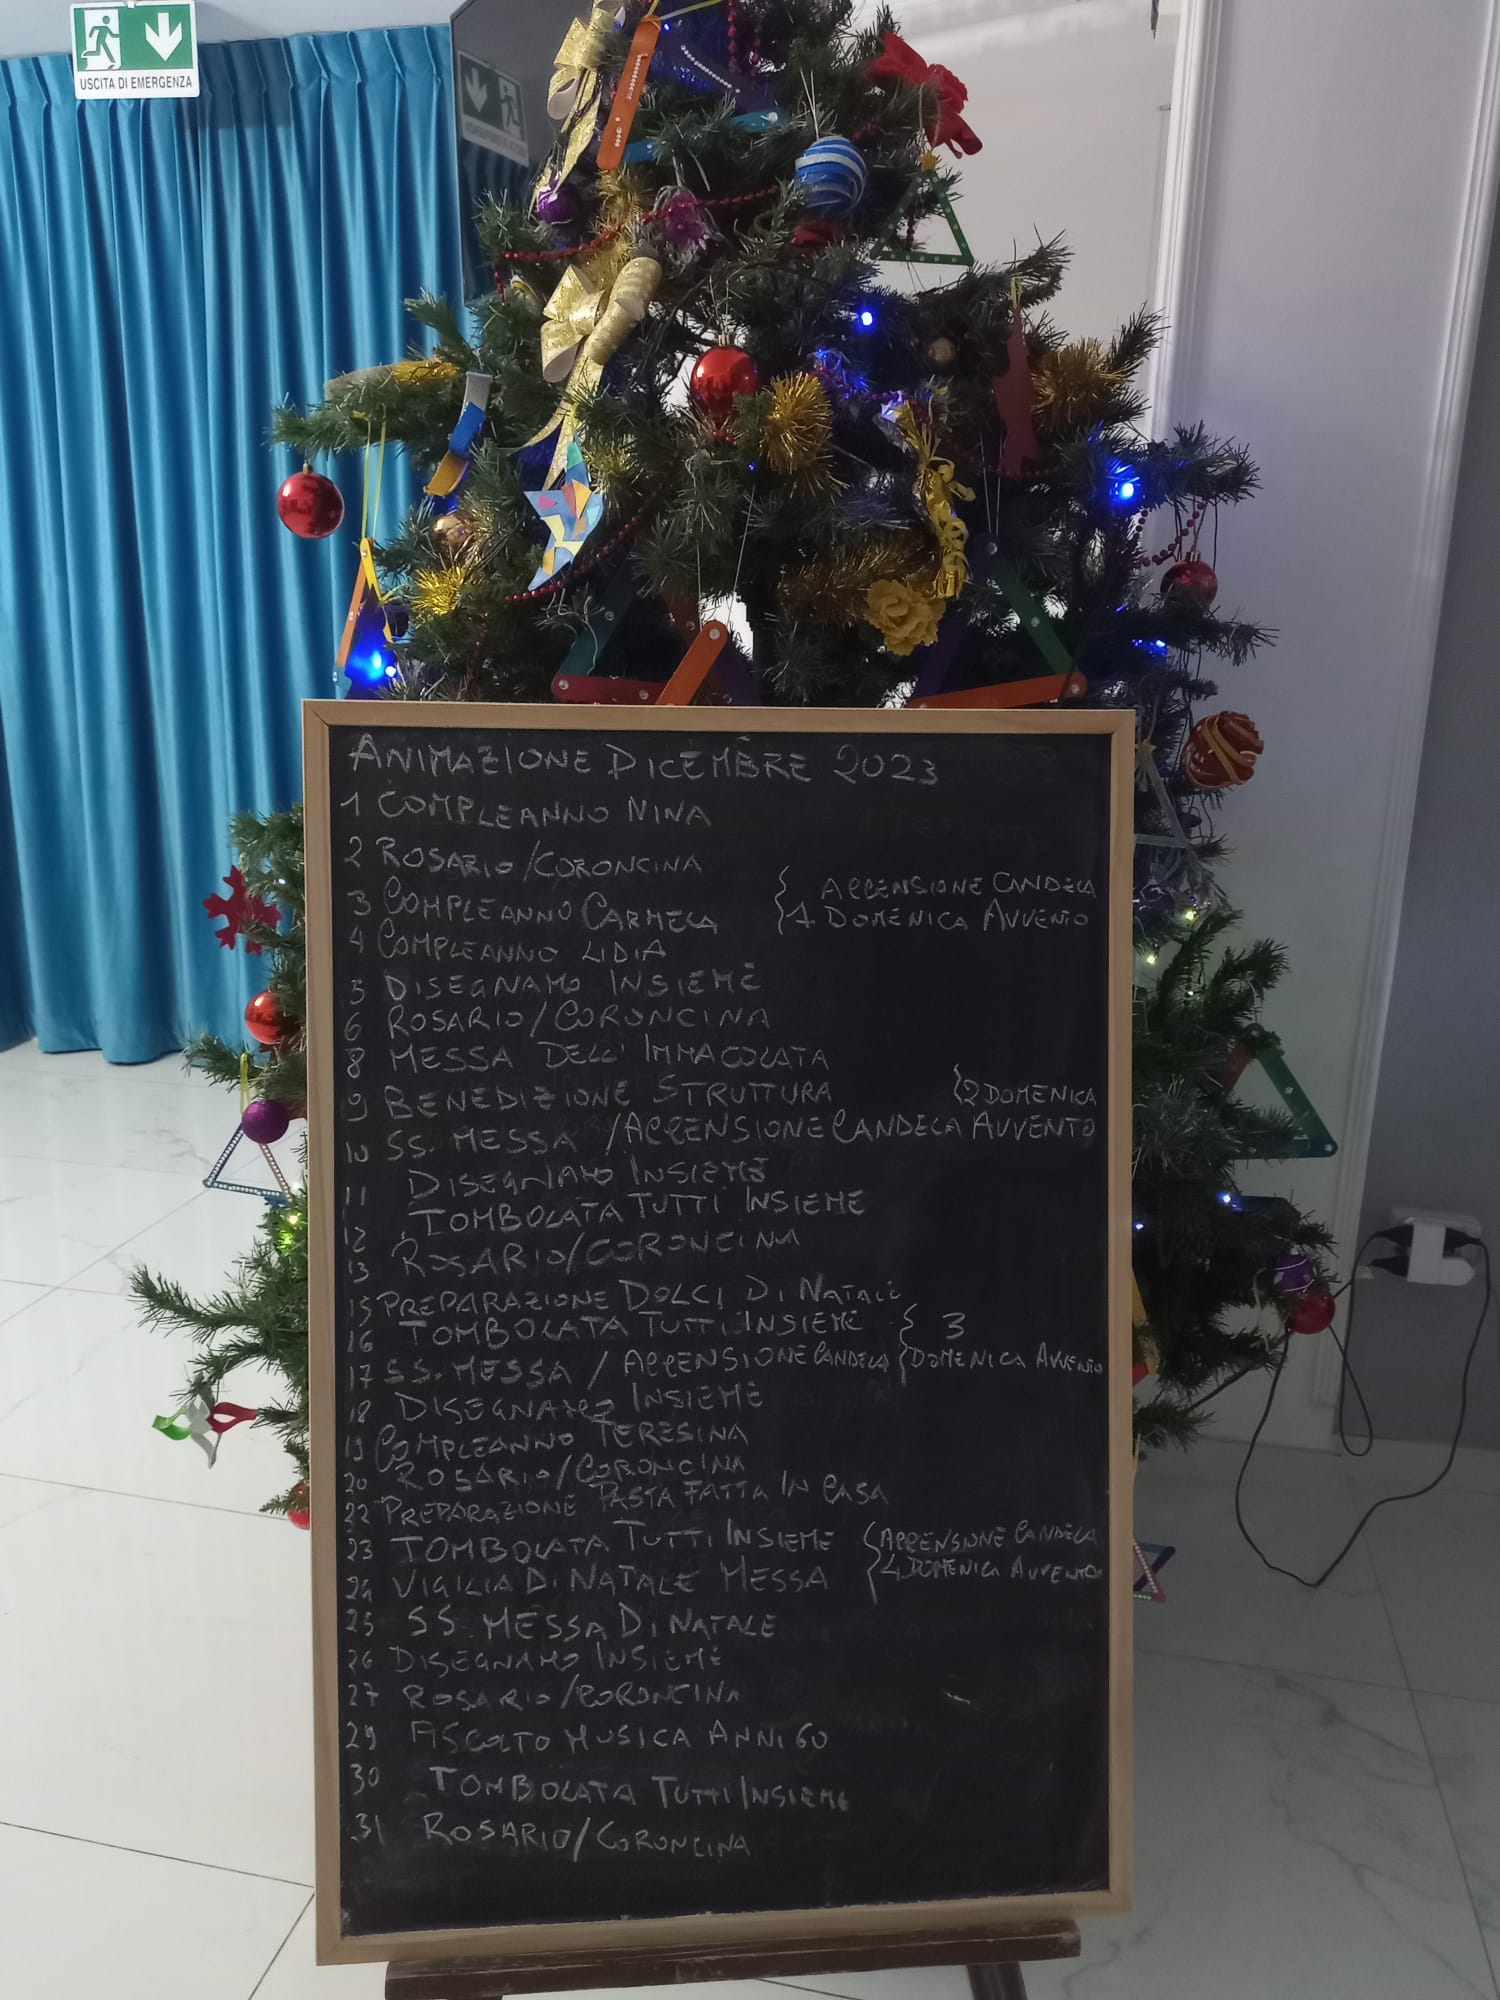 USCITA DI EMERGENZA
ANIMAZIONE DICEMBRE 2023
1 COMPLEANNO NINA
2 ROSARIO/CORONCINA
3 COMPLEANNO CARMELA { ACCENSIONE CANDELA
1 DOMENICA AVVENTO
4 COMPLEANNO LIDIA
5 DISEGNAMO INSIEME
6 ROSARIO/CORONCINA
8 MESSA DELL'IMMACOLATA
9 BENEDIZIONE STRUTTURA {2 DOMENICA
10 SS. MESSA /ACCENSIONE CANDELA AVVENTO
11 DISEGNAMO INSIEME
12 TOMBOLATA TUTTI INSIEME
13 ROSARIO/CORONCINA
15 PREPARAZIONE DOLCI DI NATALE
16 TOMBOLATA TUTTI INSIEME { 3
17 SS. MESSA / ACCENSIONE CANDELA { DOMENICA AVVENTO
18 DISEGNAMO INSIEME
19 COMPLEANNO TERESINA
20 ROSARIO/CORONCINA
22 PREPARAZIONE PASTA FATTA IN CASA
23 TOMBOLATA TUTTI INSIEME { ACCENSIONE CANDELA
24 VIGILIA DI NATALE MESSA { 4 DOMENICA AVVENTO
25 SS MESSA DI NATALE
26 DISEGNAMO INSIEME
27 ROSARIO/CORONCINA
29 ASCOLTO MUSICA ANNI 60
30 TOMBOLATA TUTTI INSIEME
31 ROSARIO/CORONCINA